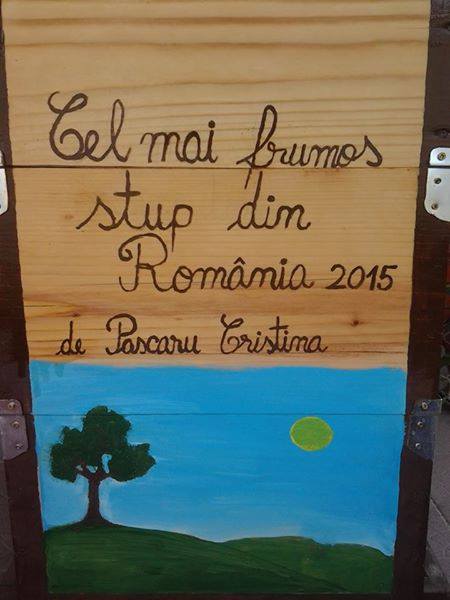 Cel mai frumos
stup din
România 2015
de Pascaru Cristina